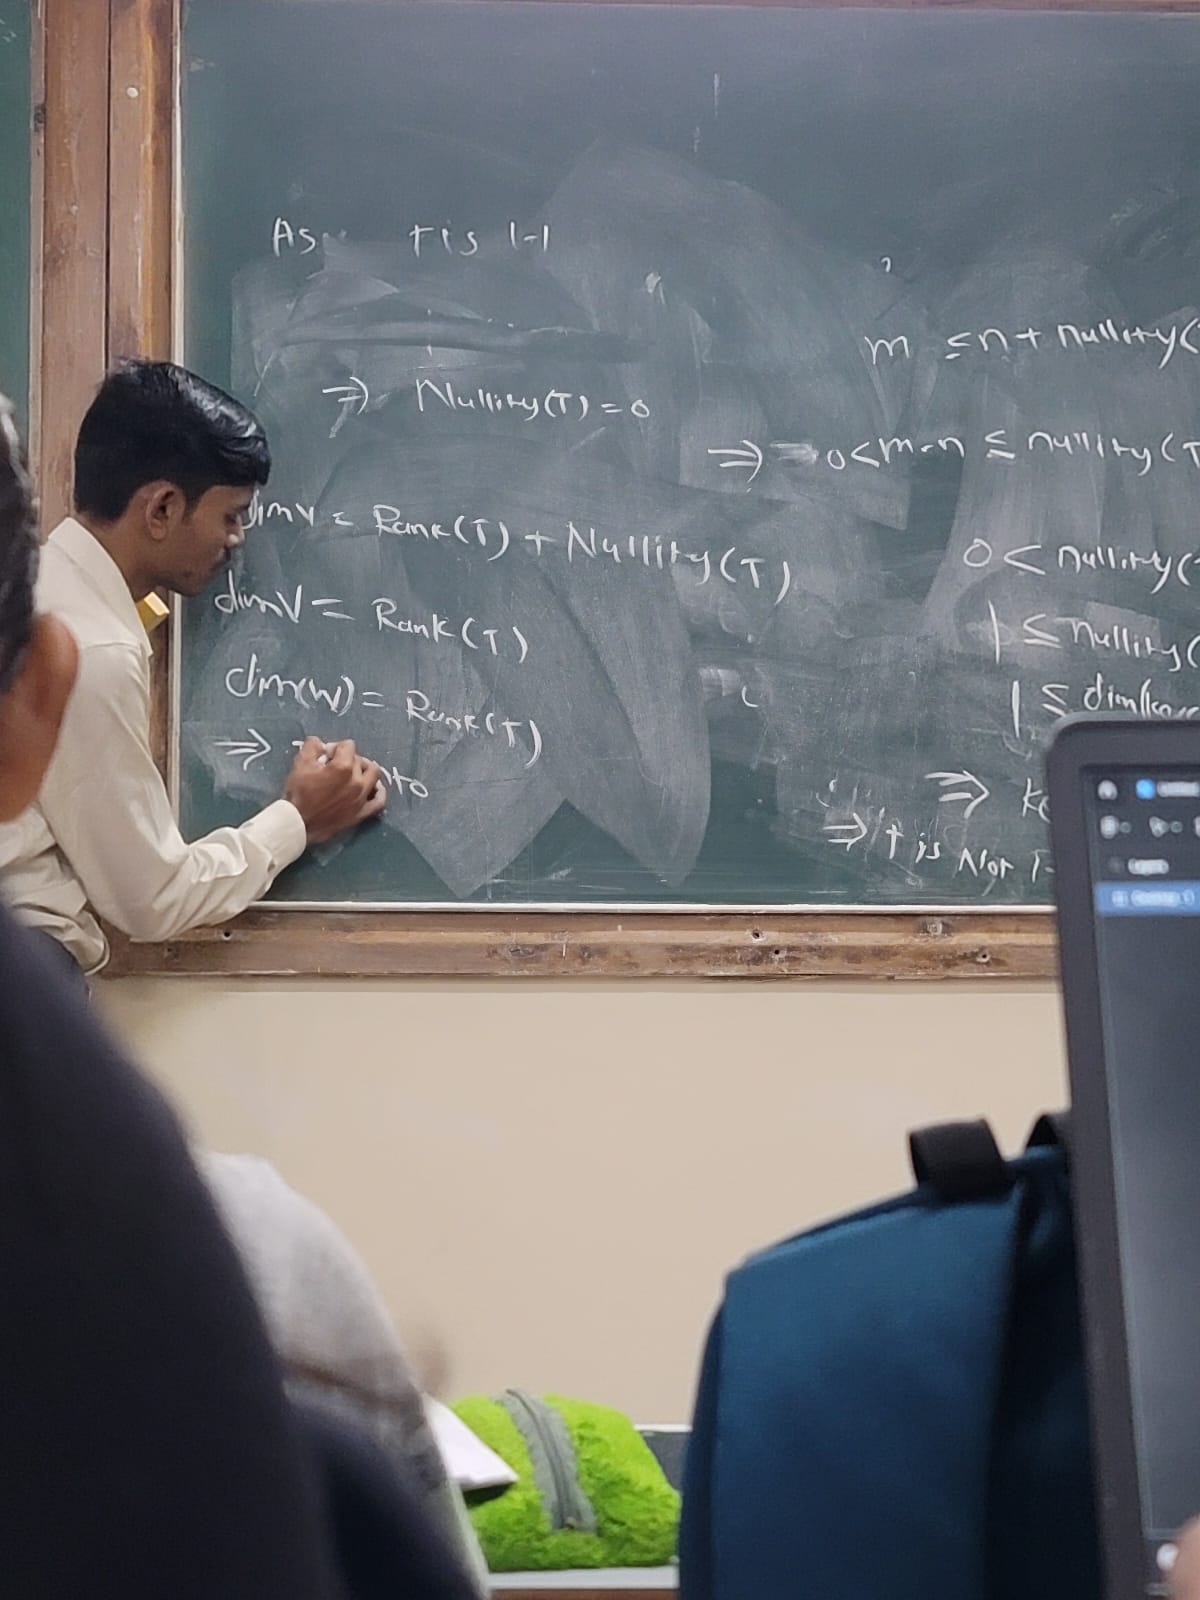 T is 1-1
⇒ Nullity(T) = 0
dimV = Rank(T) + Nullity(T)
dimV = Rank(T)
dim(W) = Rank(T)
⇒
m ≤ n + nullity(
⇒ 0 < m-n ≤ nullity(T
0 < nullity(
1 ≤ nullity(
1 ≤ dim(
⇒ Ke
⇒ T is Not 1-